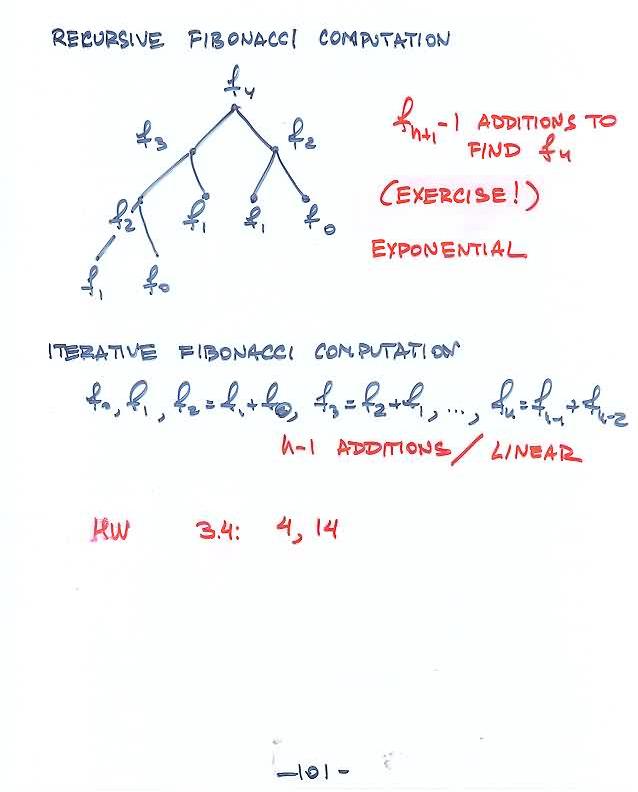 RECURSIVE FIBONACCI COMPUTATION
f₄
f₃ f₂
f₂ f₁ f₁ f₀
f₁ f₀
fₙ₊₁-1 ADDITIONS TO
FIND fₙ
(EXERCISE!)
EXPONENTIAL
ITERATIVE FIBONACCI COMPUTATION
f₀, f₁, f₂=f₁+f₀, f₃=f₂+f₁, ..., fₙ=fₙ₋₁+fₙ₋₂
n-1 ADDITIONS / LINEAR
HW 3.4: 4, 14
-101-